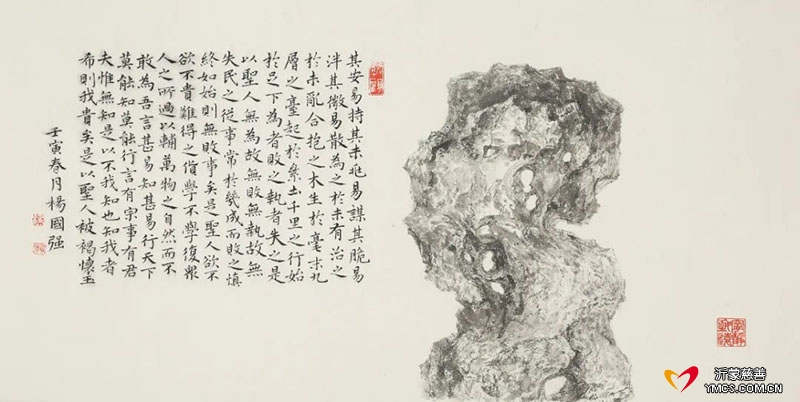 其安易持其未兆易謀其脆易
泮其微易散為之於未有治之
於未亂合抱之木生於毫末九
層之臺起於絫土千里之行始
於足下為者敗之執者失之是
以聖人無為故無敗無執故無
失民之從事常於幾成而敗之慎
終如始則無敗事矣是聖人欲不
欲不貴難得之貨學不學復眾
人之所過以輔萬物之自然而不
敢為吾言甚易知甚易行天下
莫能知莫能行言有宗事有君
夫惟無知是以不我知也知我者
希則我貴矣是以聖人被褐懷玉
壬寅春月楊國强
沂蒙慈善
YMCS.COM.CN